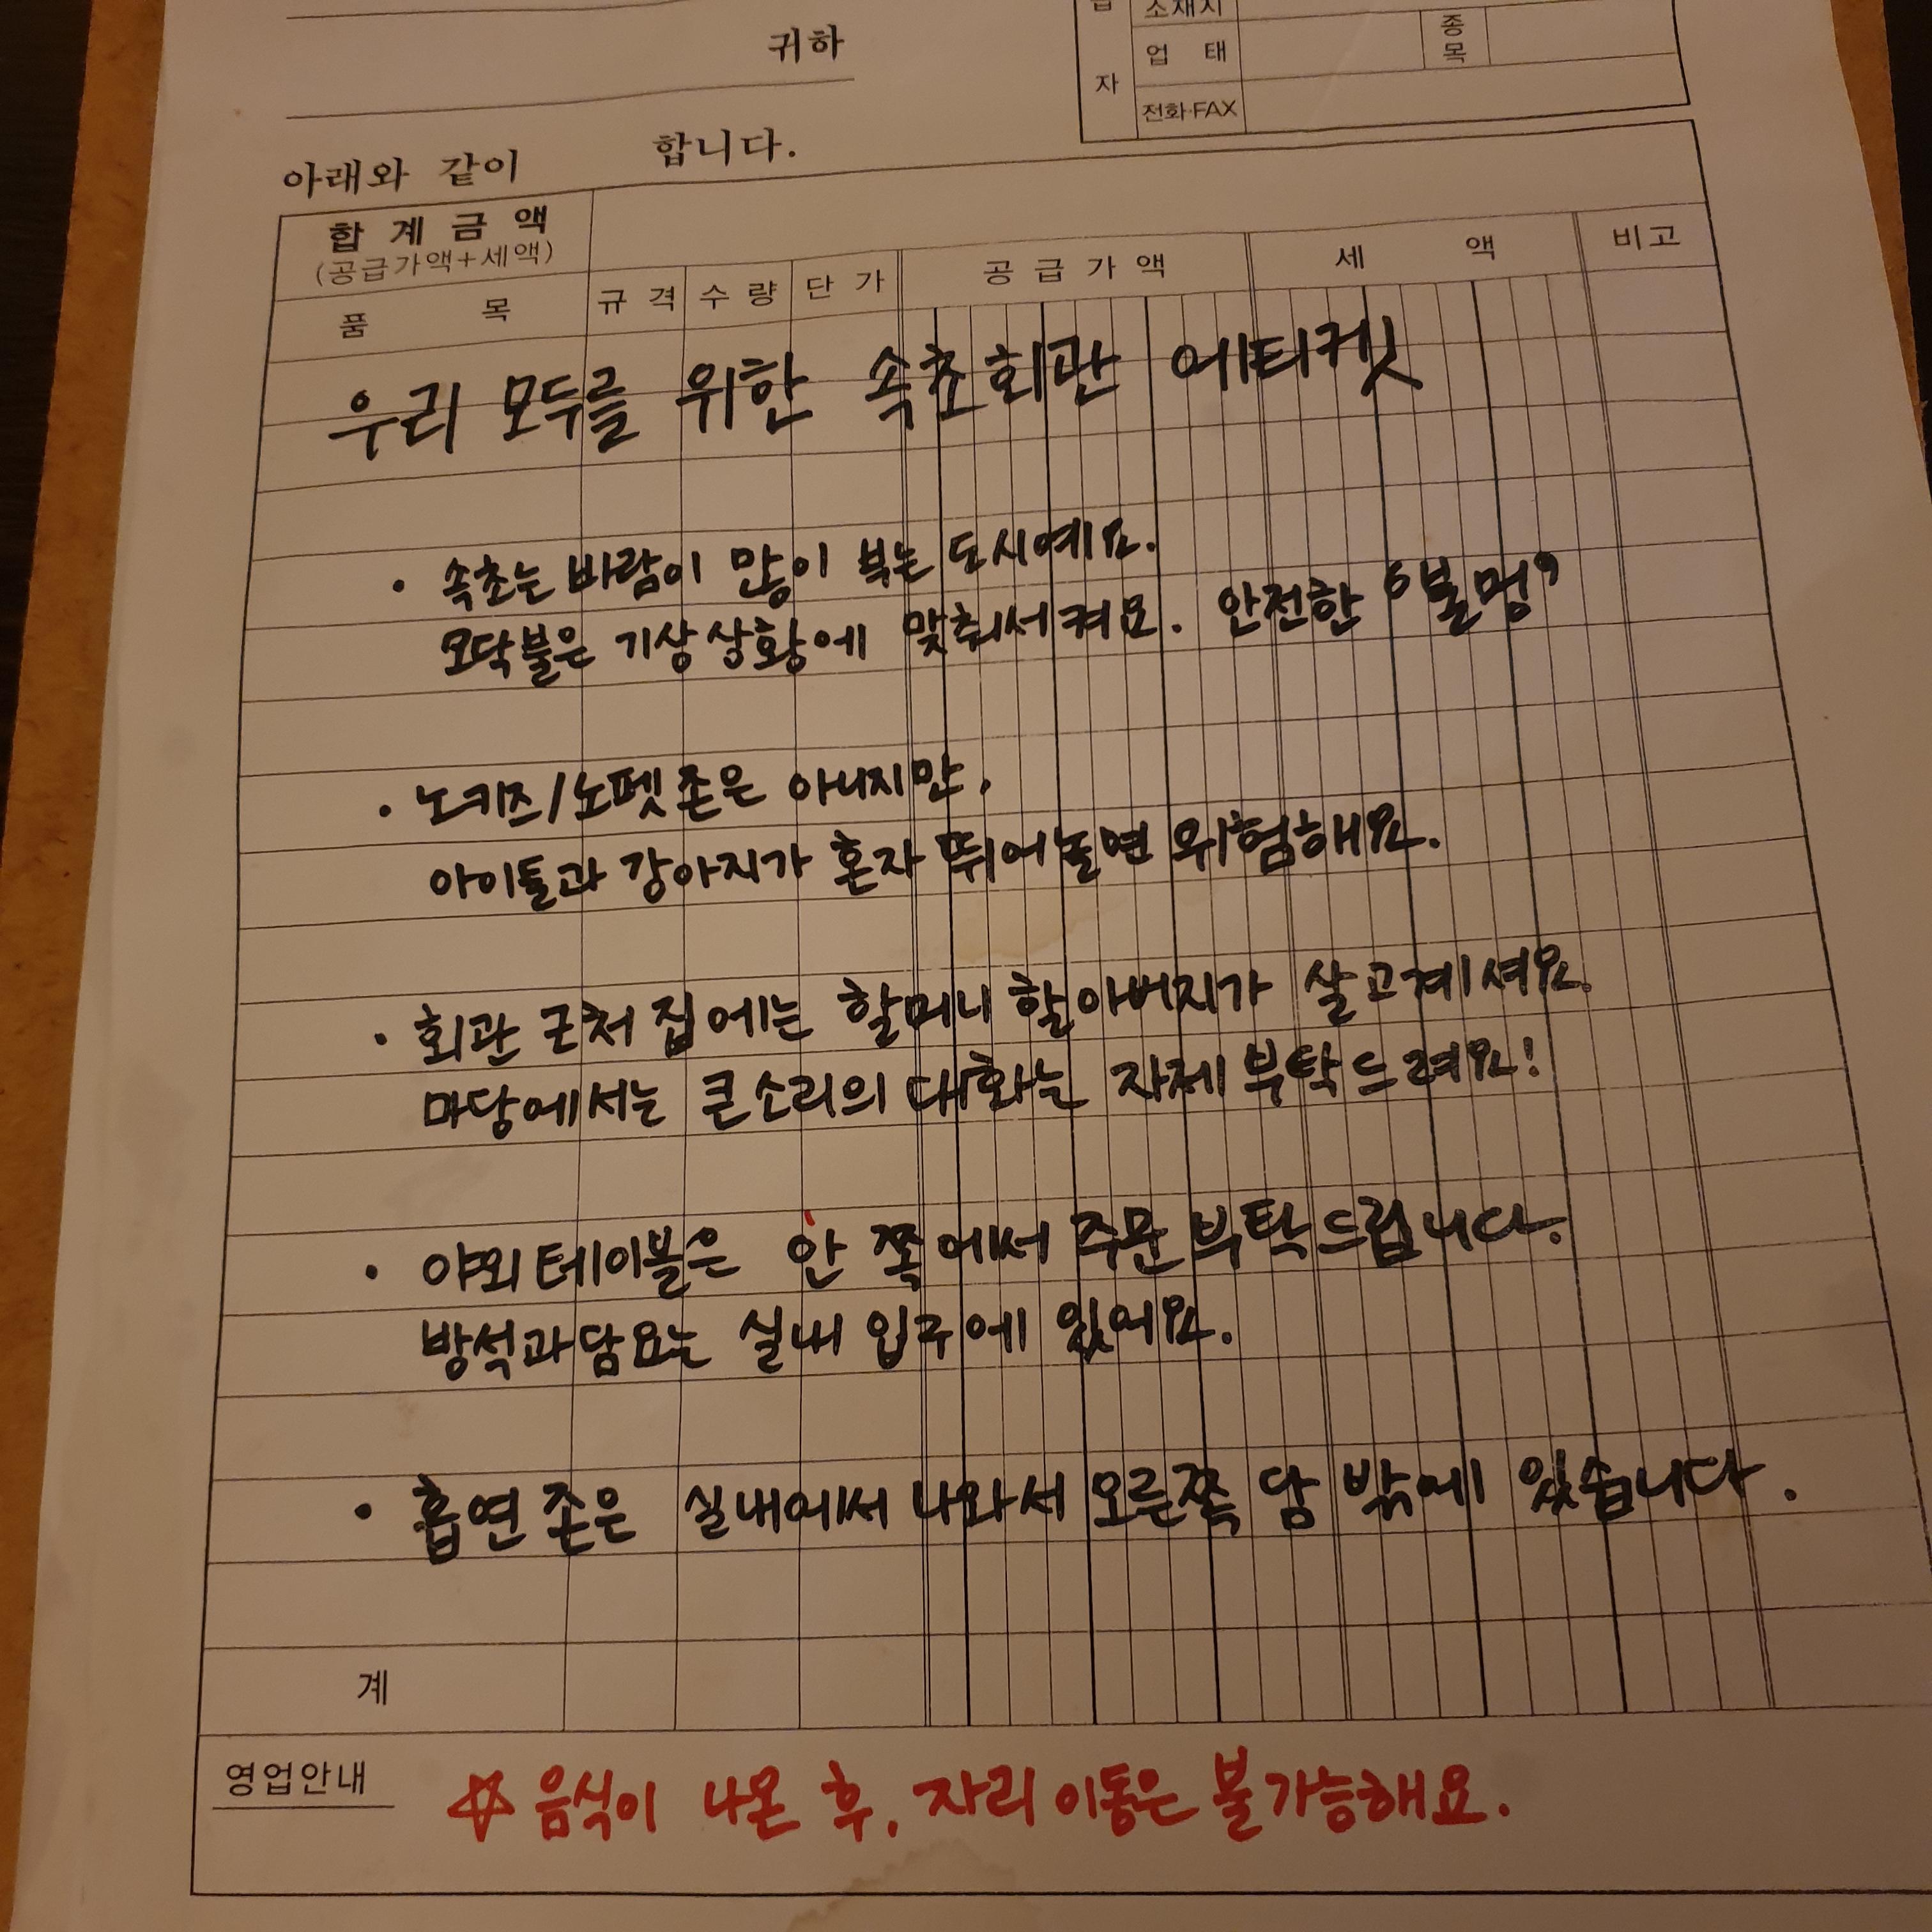 귀하
소재지
업 태
종목
자
전화·FAX
아래와 같이 합니다.
합 계 금 액
(공급가액+세액)
품 목 규 격 수 량 단 가 공 급 가 액 세 액 비고
우리 모두를 위한 속초회관 에티켓
· 속초는 바람이 많이 부는 도시예요.
모닥불은 기상상황에 맞춰서 켜요. 안전한 '불멍'
· 노키즈/노펫존은 아니지만,
아이들과 강아지가 혼자 뛰어놀면 위험해요.
· 회관 근처 집에는 할머니 할아버지가 살고계셔요.
마당에서는 큰소리의 대화는 자제 부탁드려요!
· 야외테이블은 안 쪽에서 주문 부탁드립니다.
방석과 담요는 실내 입구에 있어요.
· 흡연존은 실내에서 나와서 오른쪽 담 밖에 있습니다.
계
영업안내
☆ 음식이 나온 후, 자리 이동은 불가능해요.